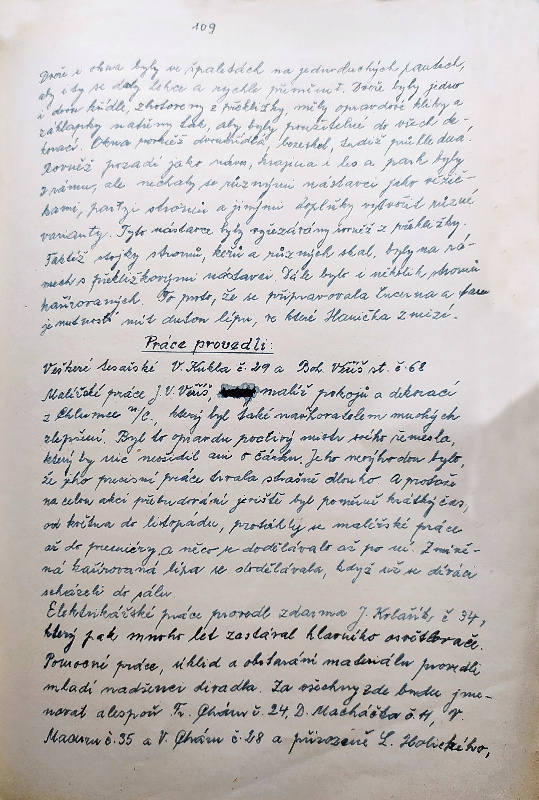 109
Dveře i okna byly ve špaletách na jednoduchých pantech,
aby i by se daly lehce a rychle přeměnit. Dveře byly jedno
i dvou křídlé, zhotoveny z překližky, měly opravdové kliky a
záklapky natřeny tak, aby byly použitelné do všech de-
korací. Okna rovněž dvoukřídlá, bezeskel, tudíž průhledná.
Rovněž pozadí jako náves, krajina i les a park byly
z rámů, ale nechaly se různými nástavci jako věžič-
kami, partií stromů a jinými doplňky vytvořit různé
varianty. Tyto nástavce byly vyřezávány rovněž z překližky.
Taktéž stojky stromů, keřů a různých skal, byly na rá-
mech s překližkovými nástavci. Dále bylo i několik stromů
kašírovaných. To proto, že se připravovala Lucerna a
je nutností mít dutou lípu, ve které Hanička zmizí.
Práce provedli:
Veškeré tesařské V. Kukla č. 29 a Boh. Věříš st. č. 68
Malířské práce J. V. Věříš, malíř pokojů a dekorací
z Chlumce n/C. který byl také navrhovatelem mnohých
zlepšení. Byl to opravdu poctivý mistr svého řemesla,
který by nic neošidil ani o čárku. Jeho nevýhodou bylo,
že jeho precisní práce trvala strašně dlouho. A protože
na celou akci přebudování jeviště byl poměrně krátký čas,
od května do listopadu, protáhly se malířské práce
až do premiéry, a něco se dodělávalo až po ní. Zmíně-
ná kašírovaná lípa se dodělávala, když už se diváci
scházeli do sálu.
Elektrikářské práce provedl zdarma J. Kolařík č 34,
který pak mnoho let zastával hlavního osvětlovače.
Pomocné práce, úklid a obstarání materiálu provedli
mladí nadšenci divadla. Za všechny zde budu jme-
novat alespoň Fr. Cháru č. 24, D. Macháčka č. 11, V.
Macuru č. 35 a V. Cháru č. 28 a přirozeně L. Holického,